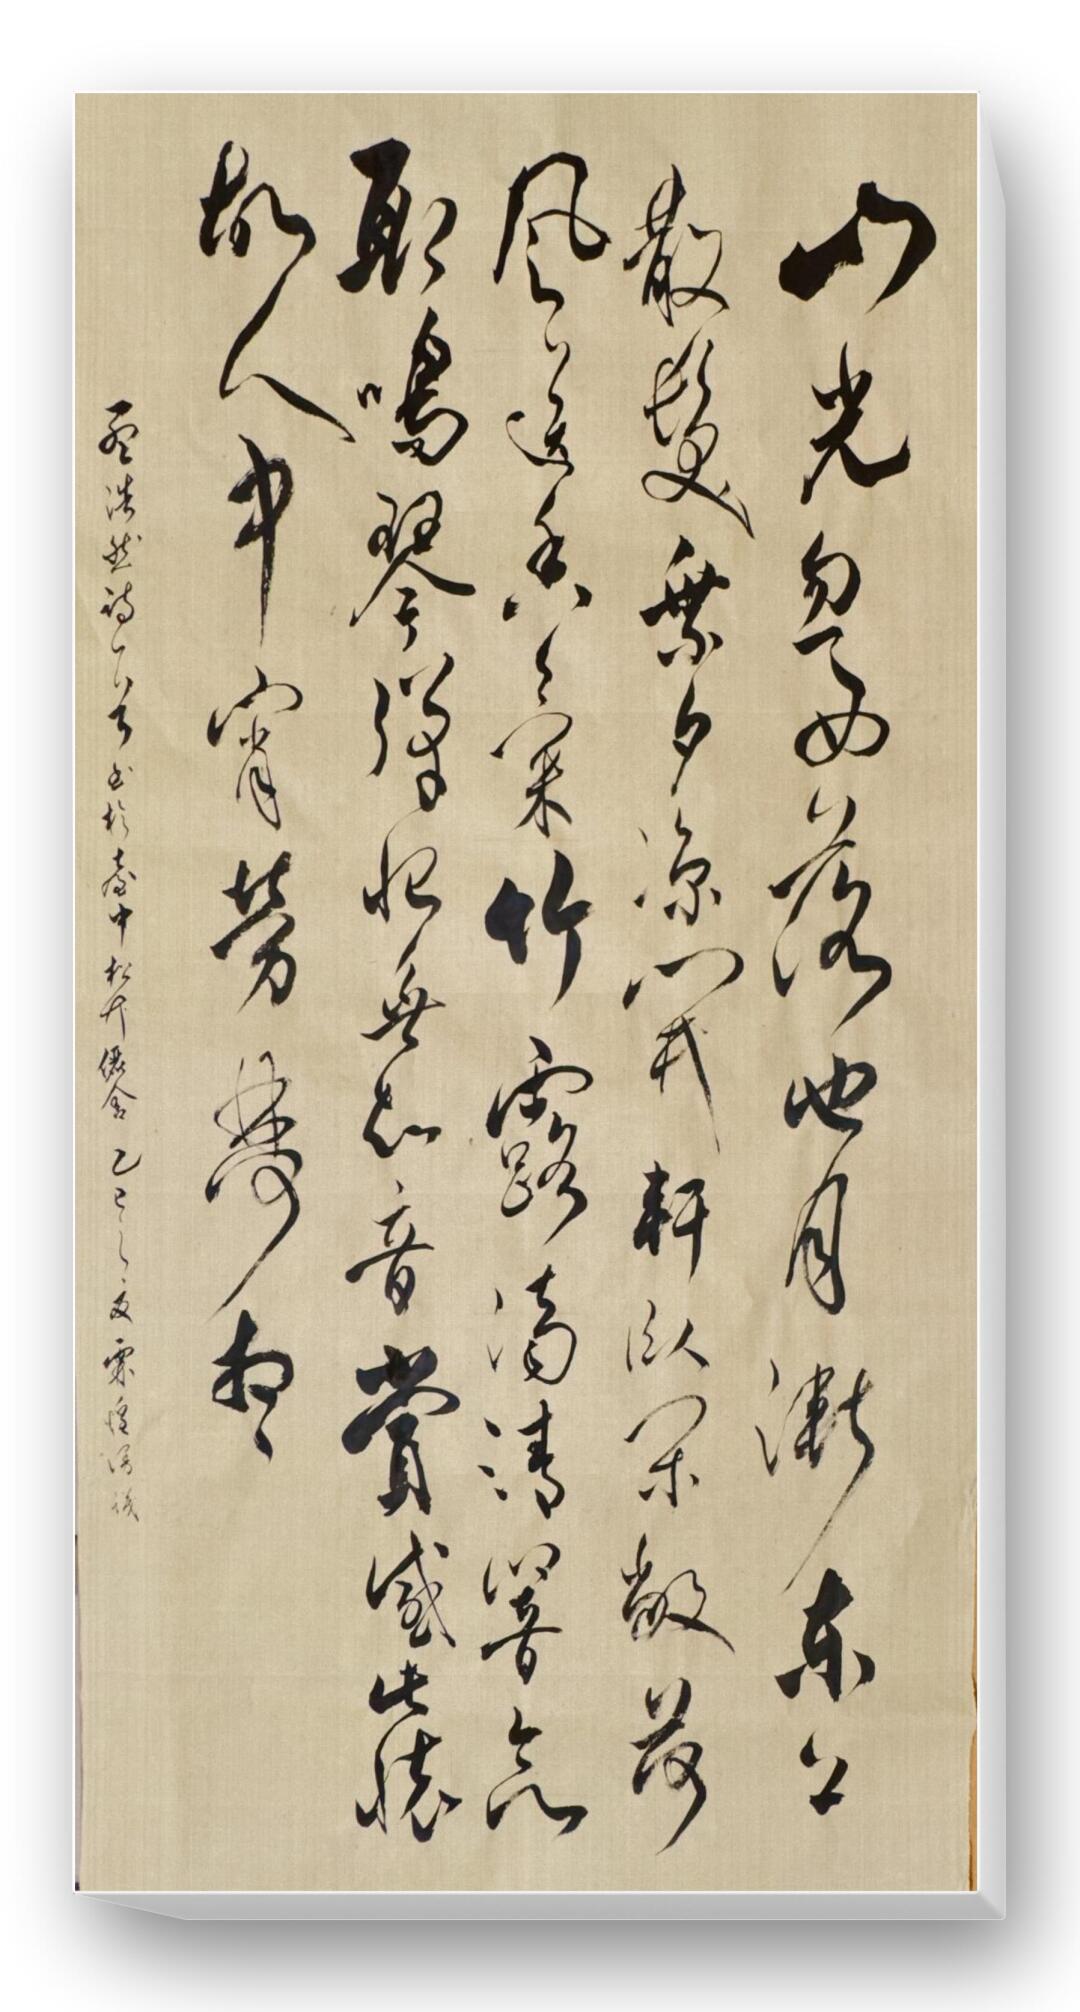 山光忽西落池月漸東上
散髮乘夕涼開軒臥閒敞荷
風送香氣竹露滴清響欲
取鳴琴彈恨無知音賞感此懷
故人中宵勞夢想
孟浩然詩一首書於臺中松舍乙巳之夏霖煌